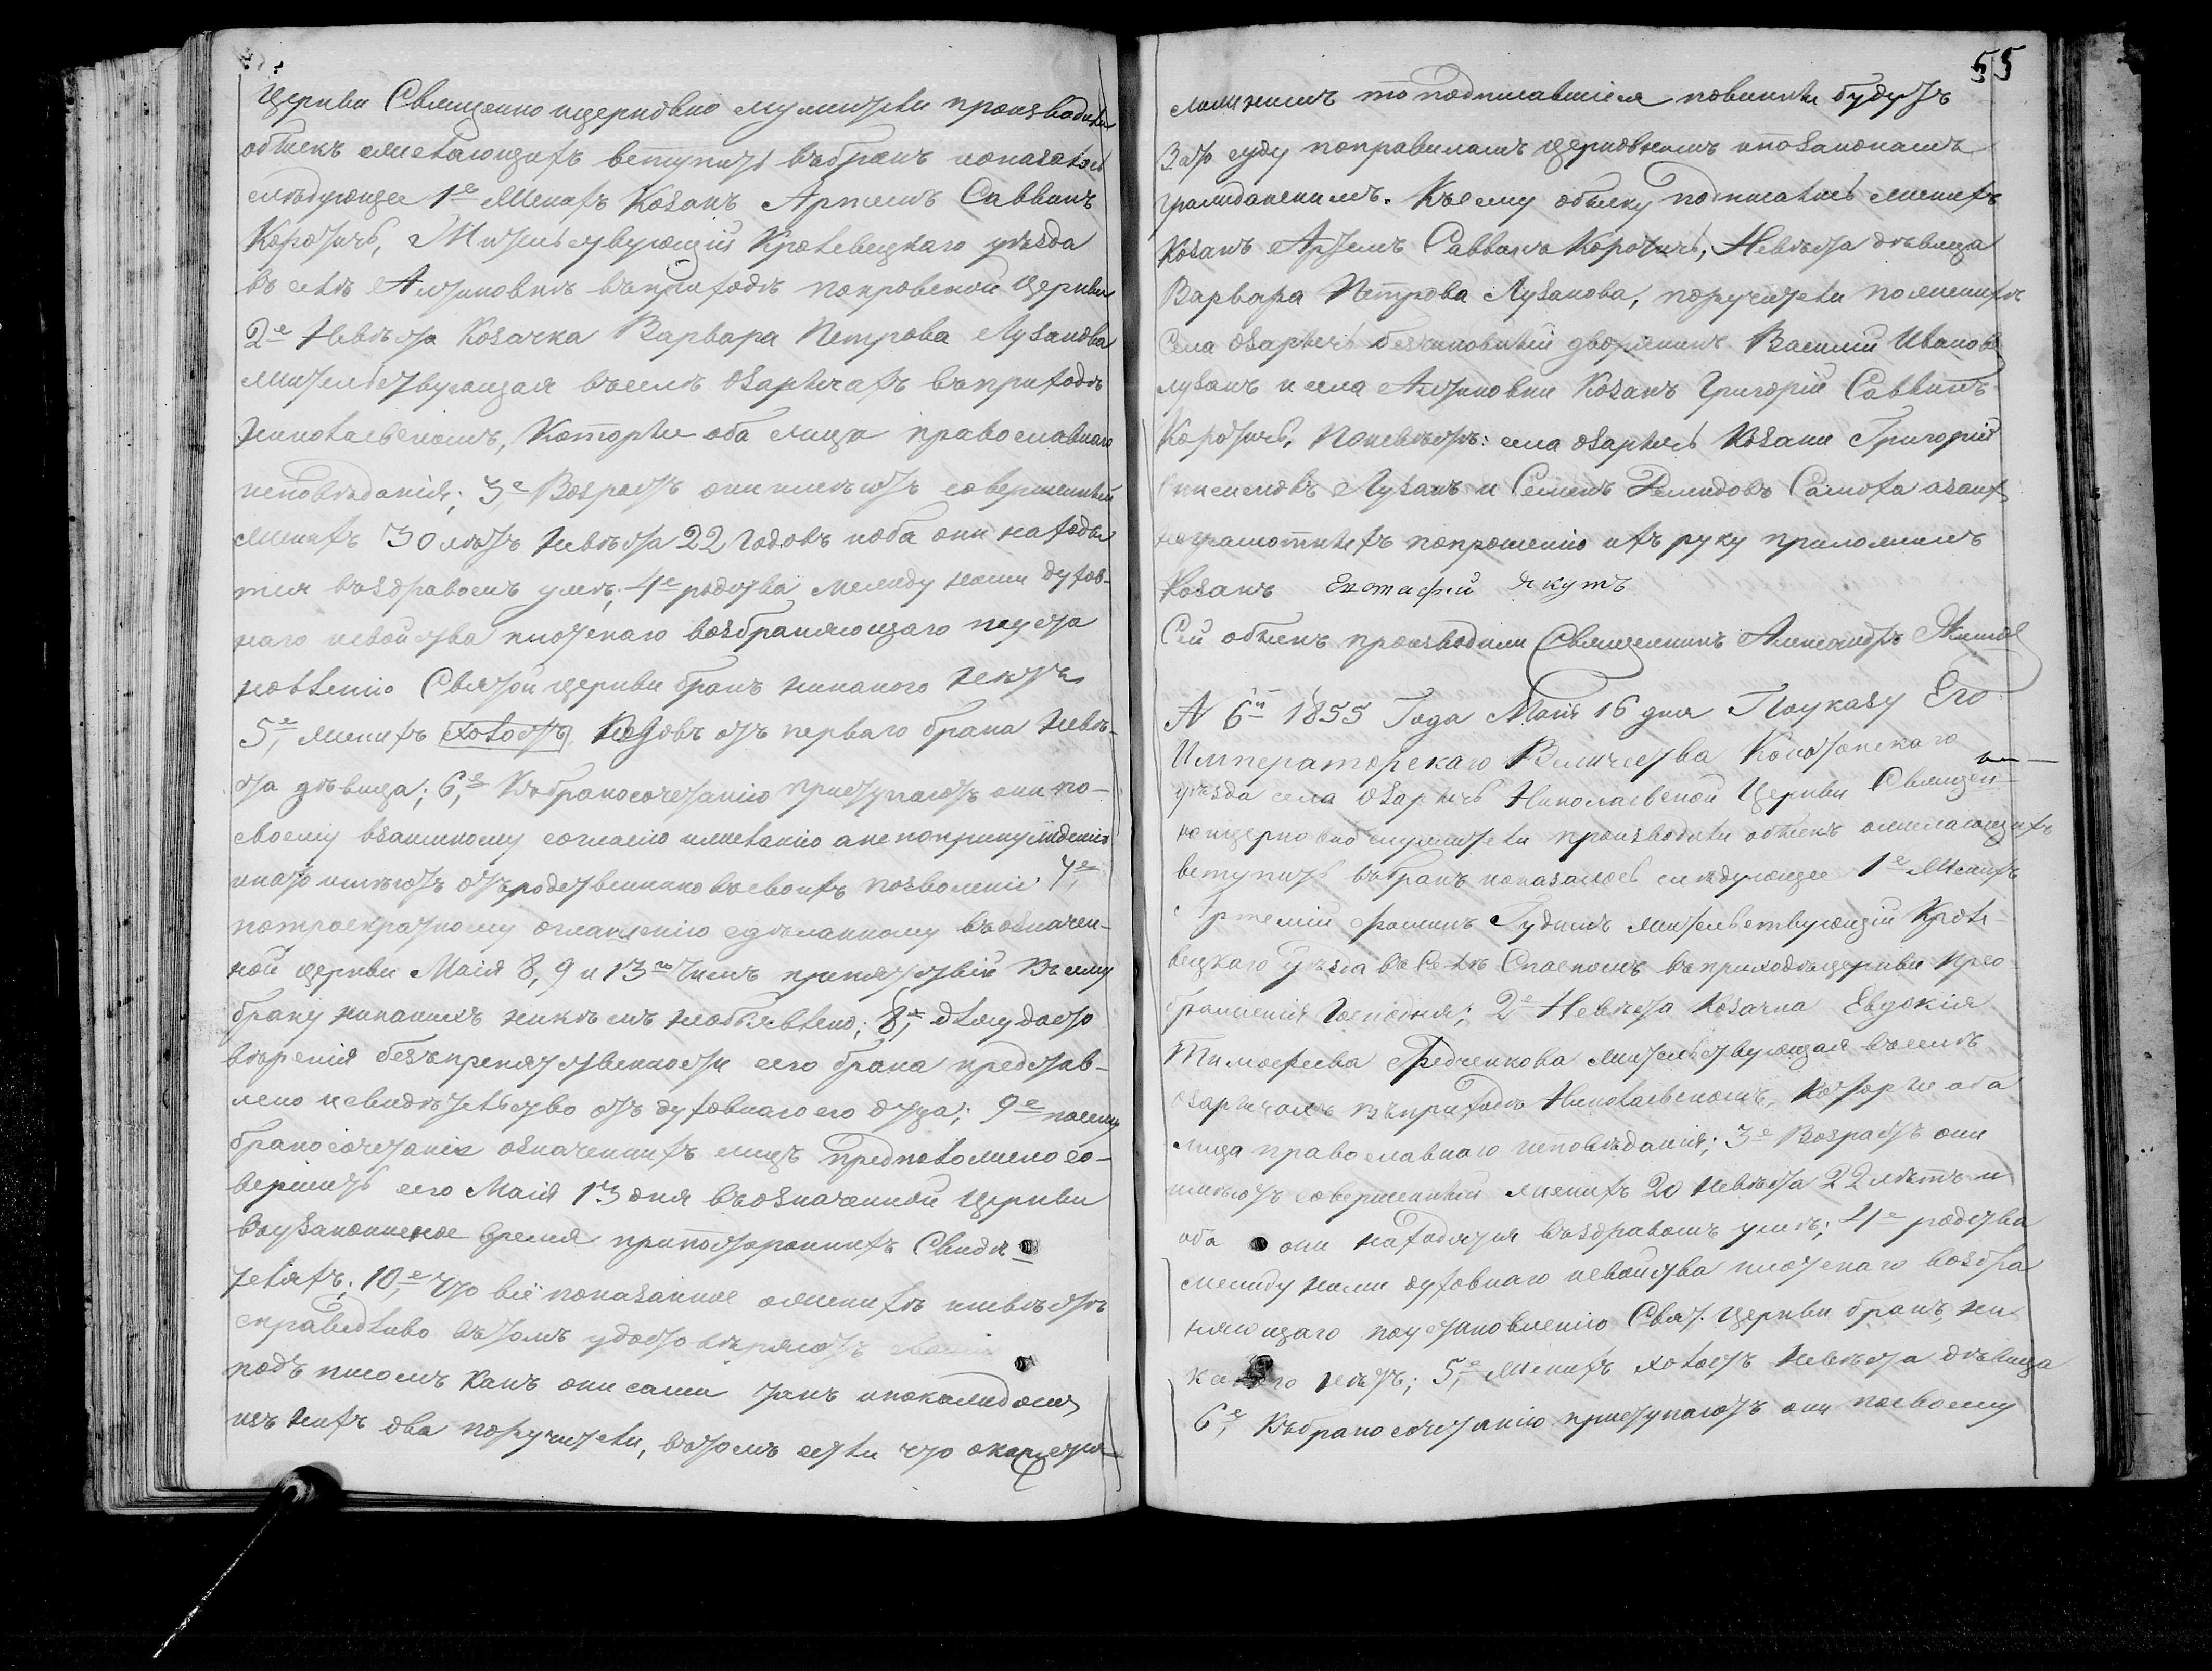 Церкви Священно ицерковно служители производили
обыскъ ожелающихъ вступить въбракъ ипоказалось
слѣдующее 1е Женихъ Козакъ Артемъ Саввинъ
Коротичъ, Жительствующій Кролевецкаго уѣзда
въ селѣ Алтиновкѣ въприходѣ покровской Церкви
2е Невѣста Козачка Варвара Петрова Лузанова
жительствующая въселѣ Озарычахъ въприходѣ
Николаевскомъ, Которые оба лица православнаго
исповѣданія; 3е Возрастъ они имѣютъ совершенный
Женихъ 30 лѣтъ Невѣста 22 Годовъ иоба они находят
тся въздравомъ умѣ; 4е родства между ними духов-
наго исвойства плотскаго возбраняющаго поуста
новленію Святой Церкви бракъ никакого нетъ
5е, женихъ холостъ вдовъ отъ перваго брака невѣ-
ста дѣвица; 6е, Къбракосочетанію приступаютъ они по-
своему взаимному согласію ижеланію анепопринужденію
инато имѣютъ отъродственниковъсвоихъ позволеніе 7е,
потроекратному оглашенію сдѣланному въозначен-
ной церкви Маія 8, 9 и 13го Числъ препятствій Къ сему
браку никакихъ никѣмъ необъявлено; 8е, дляудосто
вѣренія безъпрепятственности сего брака представ-
лено исвидѣтельство отъ духовнаго его отца; 9е посему
бракосочетаніе означенныхъ лицъ предположено со-
вершить сего Маія 13 дня въозначенной Церкви
въузаконненое время припостороннихъ Свидѣ
теляхъ; 10е, Что всё показанное оженихѣ иневѣстѣ
справедливо въ томъ удостовѣряютъ своимъ
подъ писомъ какъ они сами такъ ипокаждомъ
изъ нихъ два поручители, въ томъ если что окажется
55
ложнымъ то подписавшіеся повинны будутъ
Зато суду поправиламъ церковнымъ ипозаконамъ
гражданскимъ. Къ сему обыску подписались женихъ
Козакъ Артемъ Саввинъ Коротичъ, Невѣста дѣвица
Варвара Петрова Лузанова, поручители поженихѣ
Села Озарычъ безчиновный дворянинъ Василій Ивановъ
лузанъ и села Алтиновки Козакъ Григорій Саввинъ
Коротичъ, Поневѣстѣ: села Озарычъ Козаки Григорій
Лузанъ и Семенъ Демидовъ Самоха азаихъ
неграмотныхъ попрошенію ихъ руку приложилъ
Козакъ Евстафій Якутъ
Сей обыскъ производили Священникъ Александръ
№ 6й 1855 Года Маія 16 дня Поуказу Его
Императорскаго Величества Конотопскаго
уѣзда села Озарычъ Николаевской Церкви Священ-
ноицерковно служители производили обыскъ ожелающихъ
вступить въбракъ ипоказалось слѣдующее 1е Женихъ
Артемій Фоминъ Гудимъ жительствующій Кроле-
вецкаго уѣзда въ Селѣ Спаскомъ въприходѣцеркви Прео-
браженія Господня; 2е Невѣста Козачка Евдокія
Тимофеева Федченкова жительствующая въселѣ
Озарычахъ въприходѣ Николаевскомъ, Которые оба
лица православнаго исповѣданія; 3е Возрастъ они
имѣютъ совершенный женихъ 20 невѣста 22 лѣтъ и
оба они находятся въздравомъ умѣ; 4е родства
между ними духовнаго исвойства плотскаго возбра
няющаго поустановленію Свят. Церкви бракъ ни
какого нетъ; 5е, Женихъ холостъ Невѣста дѣвица
6е, Къбракосочетанію приступаютъ они посвоему